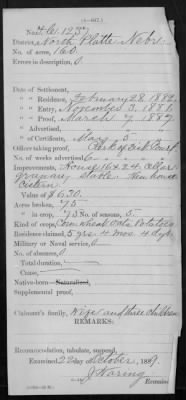 (4-407.)
No. H.E. 1237
District, North Platte Nebr
No. of acres, 160
Errors in description, 0
Date of Settlement,
" " Residence, February 28, 1882
" " Entry, November 3, 1886
" " Proof, March 9, 1889
" " Advertised,
" " of Certificate, May 5
Officer taking proof, Clerk of Dist Court
No. of weeks advertised, 6
Improvements, House 16x24
granary stable hen house
cistern
Value of $ 630.
Acres broke, 75
" in crop, 75 No. of seasons, 5
Kind of crops, Corn wheat oats Potatoes
Residence claimed, 5 yrs 4 mos 4 dys
Military or Naval service, 0
No. of absences, 0
Total duration,
Cause,
Native-born—Naturalized,
Supplemental proof,
Claimant's family, Wife and three children
REMARKS:
Recommendation, tabulate, suspend,
Examined 22 day of October, 1889.
J. Waring
Examiner